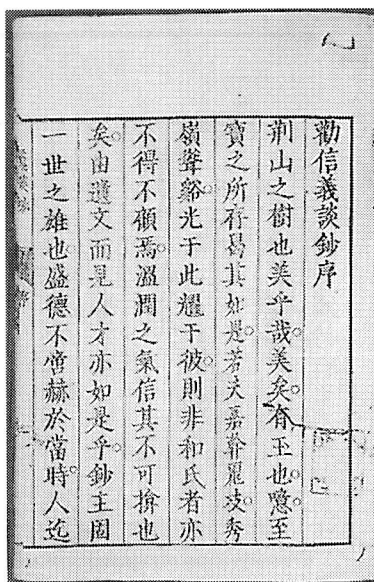 勸信義談鈔序
荆山之樹也美乎哉美矣有玉也噫至
寶之所存曷其如是若夫嘉幹罷枝秀
嶺聳谿光于此耀于彼則非和氏者亦
不得不顧焉溫潤之氣信其不可揜也
矣由遺文而見人才亦如是乎鈔主固
一世之雄也盛德不啻赫於當時人迄